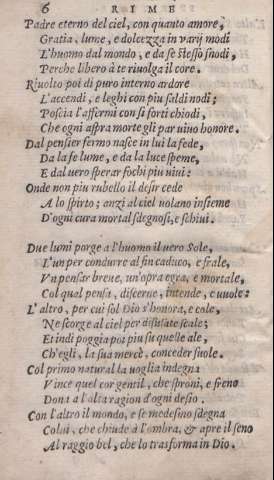 6 RIME
Padre eterno del ciel, con quanto amore,
Gratia, lume, e dolcezza in varij modi
L'huomo dal mondo, e da se stesso snodi,
Perche libero à te riuolga il core.
Riuolto poi di puro interno ardore
L'accendi, e leghi con piu saldi nodi;
Poscia l'affermi con sì forti chiodi,
Che ogni aspra morte gli par uiuo honore.
Dal pensier fermo nasce in lui la fede,
Da la fe lume, e da la luce speme,
E dal uero sperar fochi piu uiui:
Onde non piu rubello il desir cede
A lo spirto; anzi al ciel uolano insieme
D'ogni cura mortal sdegnosi, e schiui.
Due lumi porge a l'huomo il uero Sole,
L'un per condurre al fin caduco, e frale,
Vn pensar breue, un'opra egra, e mortale,
Col qual pensa, discerne, intende, e uuole:
L'altro, per cui sol Dio s'honora, e cole,
Ne scorge al ciel per disusate scale;
Et indi poggia poi piu su quelle ale,
Ch'egli, la sua mercè, conceder suole.
Col primo natural la uoglia indegna
Vince quel cor gentil, che sproni, e freno
Dona a l'alta ragion d'ogni desio.
Con l'altro il mondo, e se medesmo sdegna
Colui, che chiude à l'ombra, & apre il seno
Al raggio bel, che lo trasforma in Dio.